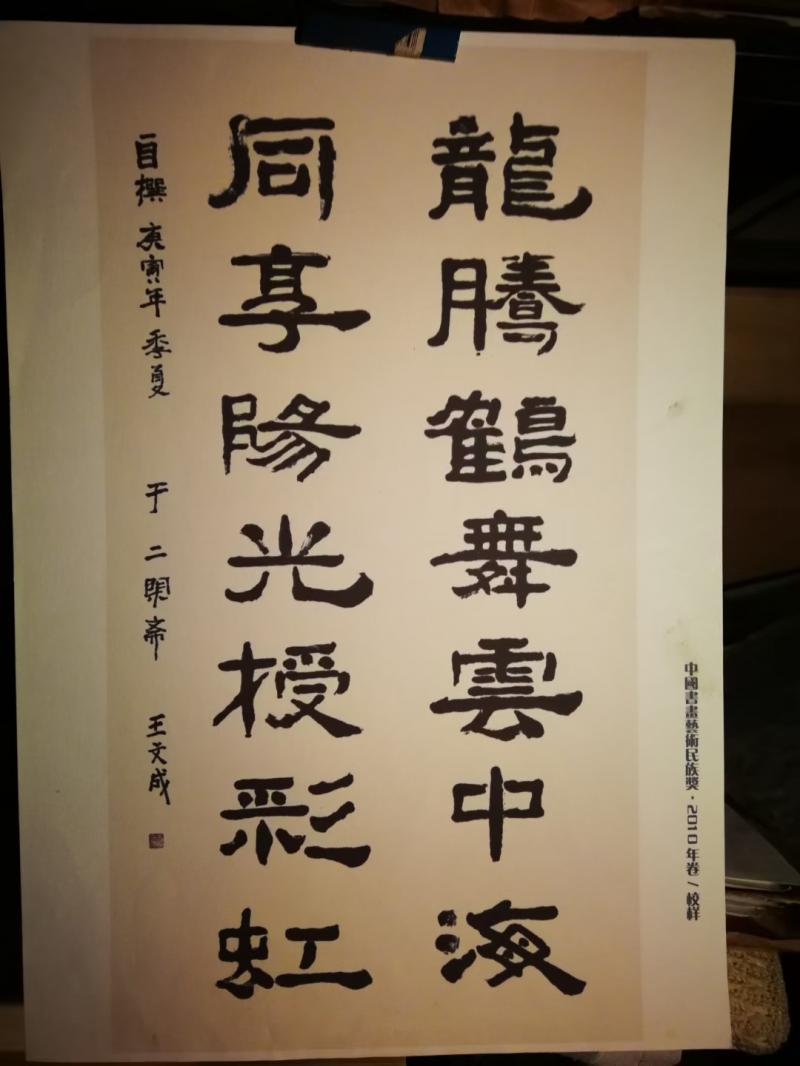 龍騰鶴舞雲中海
同享陽光授彩虹
自撰 庚寅年季夏 于二閑斋 王文成
中國書畫藝術民族獎·2010年卷/校样